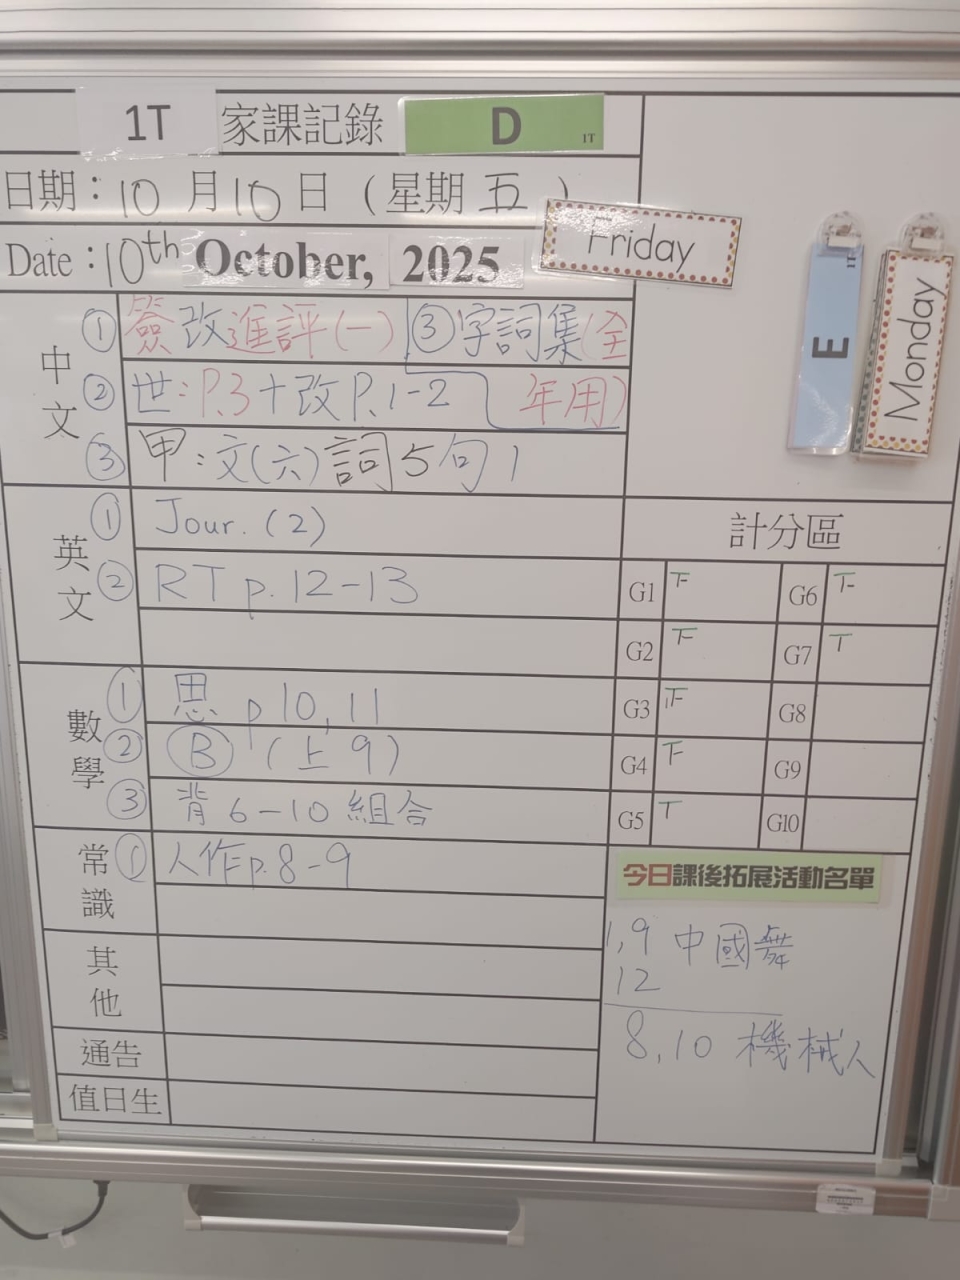 1T 家課記錄 D 1T
日期：10月10日（星期五）
Date：10th October, 2025 Friday
E 1T
Monday
中文 ① 簽改進評(一) ③字詞集(全年用)
② 世：P.3+改P.1-2
③ 甲：文(六)詞5句1
英文 ① Jour. (2)
② RT p.12-13
數學 ① 思 p10,11
② Ⓑ (上9)
③ 背6-10組合
常識 ① 人作p.8-9
其他
通告
值日生
計分區
G1 G6
G2 G7
G3 正 G8
G4 G9
G5 G10
今日課後拓展活動名單
1,9 中國舞
12
8,10 機械人